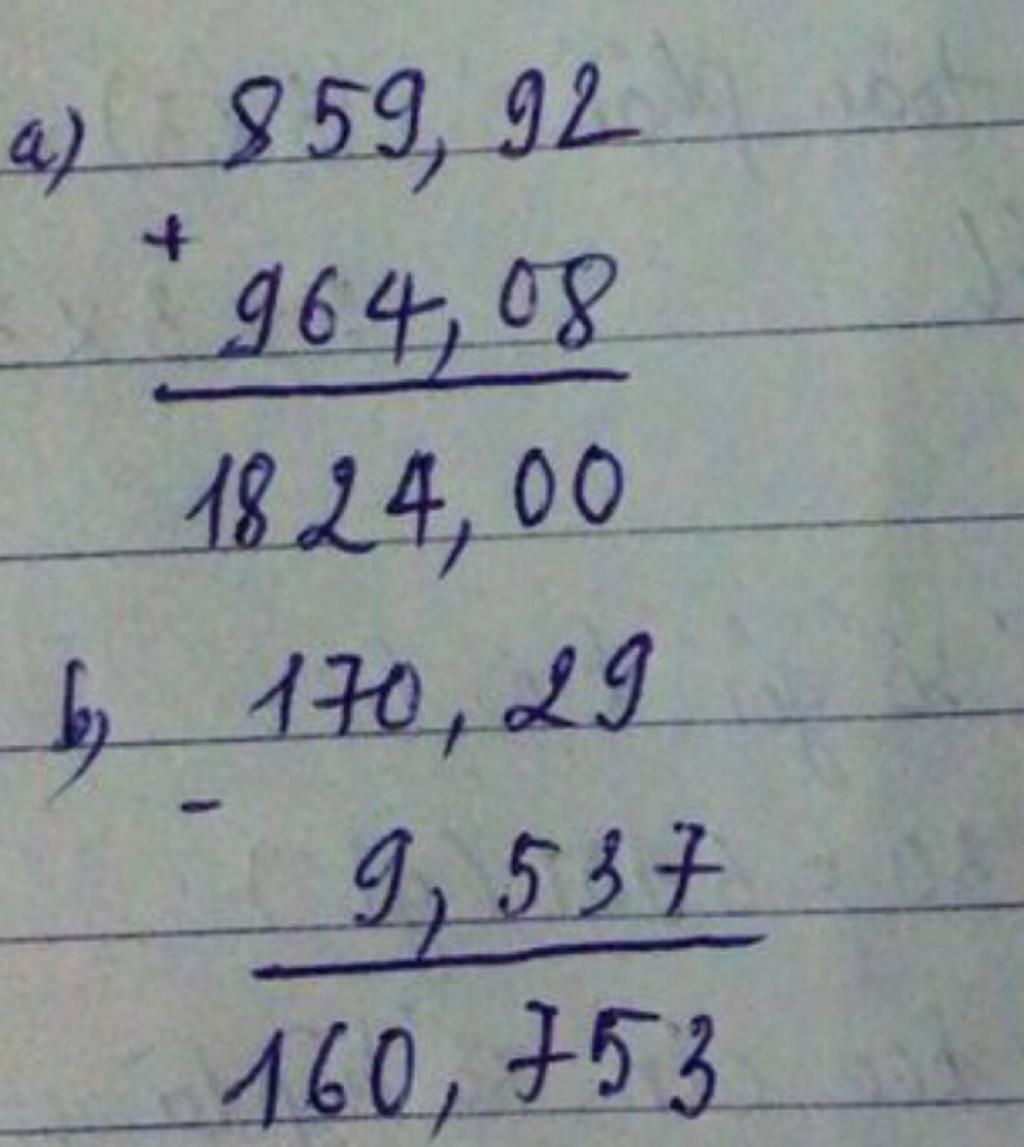 a) 859,92
+
964,08
1824,00
b, 170,29
-
9,537
160,753